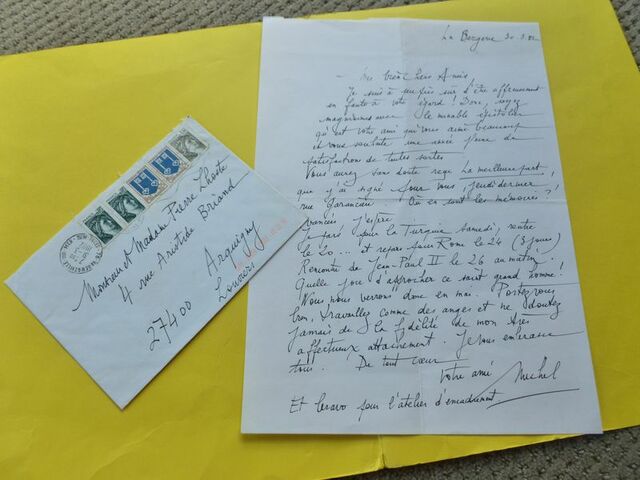 Monsieur et Madame Pierre Lhoste
4 rue Aristide Briand
Arquigny
27400 Louviers
La Bergerie 30.3.82
Mes bien chers Amis,
Je suis à peu près sûr d'être affreusement
en faute à votre égard ! Donc, soyez
magnanimes avec le minable épistolier
qu'est votre ami qui vous aime beaucoup
et vous souhaite une année pleine de
satisfactions de toutes sortes.
Vous aurez sans doute reçu La meilleure part
que j'ai signé pour vous, jeudi dernier,
rue Garancière. Où en sont les mémoires ?
Avancées j'espère.
Je pars pour la Turquie samedi, rentre
le 20... et repars pour Rome le 24 (3 jours)
Rencontre de Jean-Paul II le 26 au matin.
Quelle joie d'approcher ce saint grand homme !
Nous nous verrons donc en mai. Portez-vous
bien, travaillez comme des anges et ne doutez
jamais de la fidélité de mon très
affectueux attachement. Je vous embrasse
tous. De tout cœur
Votre ami Michel
Et bravo pour l'atelier d'encadrement